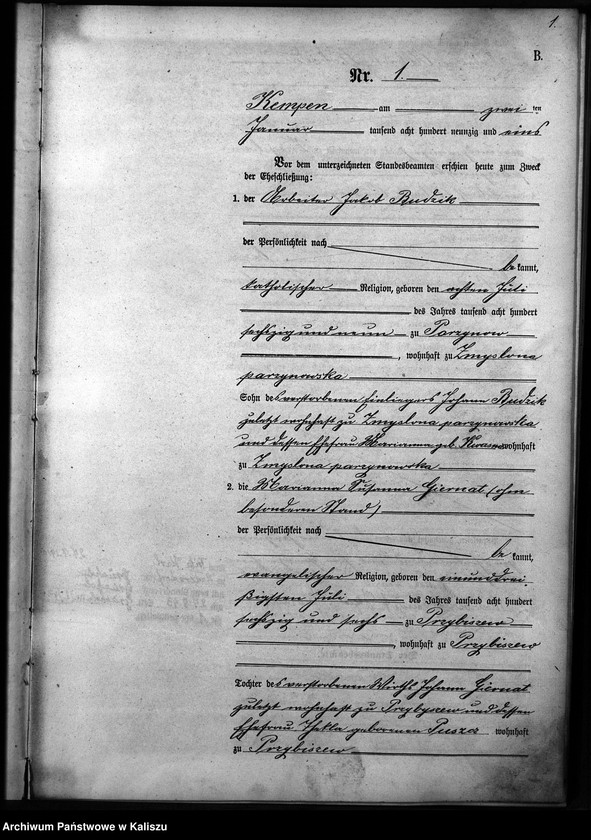 1.
B.
Nr. 1.
Kempen am zwei ten
Januar tausend acht hundert neunzig und eins
Vor dem unterzeichneten Standesbeamten erschien heute zum Zweck
der Eheschließung:
1. der Arbeiter Jakob Rudzik
der Persönlichkeit nach
be kannt,
katholischer Religion, geboren den achten Juli
des Jahres tausend acht hundert
sechszig und neun zu Parzynow
, wohnhaft zu Zmyslona
parzynowska
Sohn des verstorbenen Einliegers Johann Rudzik
zuletzt wohnhaft zu Zmyslona parzynowska
und dessen Ehefrau Marianna geb. wohnhaft
zu Zmyslona parzynowska
2. die Marianna Susanna Giernat (ohne
besonderen Stand)
der Persönlichkeit nach
be kannt,
evangelischer Religion, geboren den einunddrei
ßigsten Juli des Jahres tausend acht hundert
sechszig und sechs zu Przybiszew
, wohnhaft zu Przybiszew
Tochter des verstorbenen Wirths Johann Giernat
zuletzt wohnhaft zu Przybyszew und dessen
Ehefrau Thekla geborenen Pusza wohnhaft
zu Przybiszew
Archiwum Państwowe w Kaliszu